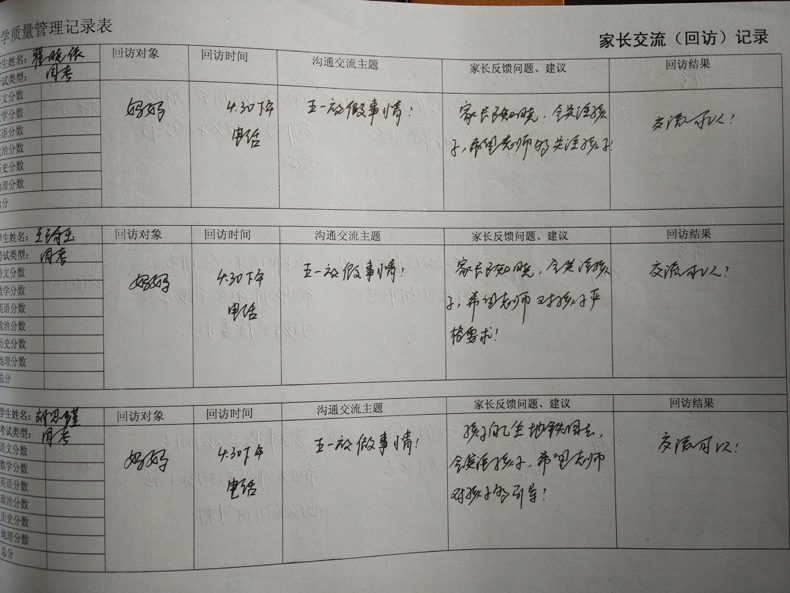 学质量管理记录表
家长交流（回访）记录
学生姓名：翟晓依
回访对象
回访时间
沟通交流主题
家长反馈问题、建议
回访结果
考试类型：周考
语文分数
数学分数
英语分数
政治分数
历史分数
地理分数
总分
妈妈
4.30下午
电话
五一放假事情！
家长已知晓，会关注孩
子，希望老师多关注孩子！
交流可以！
学生姓名：
回访对象
回访时间
沟通交流主题
家长反馈问题、建议
回访结果
考试类型：周考
语文分数
数学分数
英语分数
政治分数
历史分数
地理分数
总分
妈妈
4.30下午
电话
五一放假事情！
家长已知晓，会关注孩
子，希望老师对孩子严
格要求！
交流可以！
学生姓名：胡思瑾
回访对象
回访时间
沟通交流主题
家长反馈问题、建议
回访结果
考试类型：周考
语文分数
数学分数
英语分数
政治分数
历史分数
地理分数
总分
妈妈
4.30下午
电话
五一放假事情！
孩子自己坐地铁回去，
会关注孩子，希望老师
对孩子多引导！
交流可以！